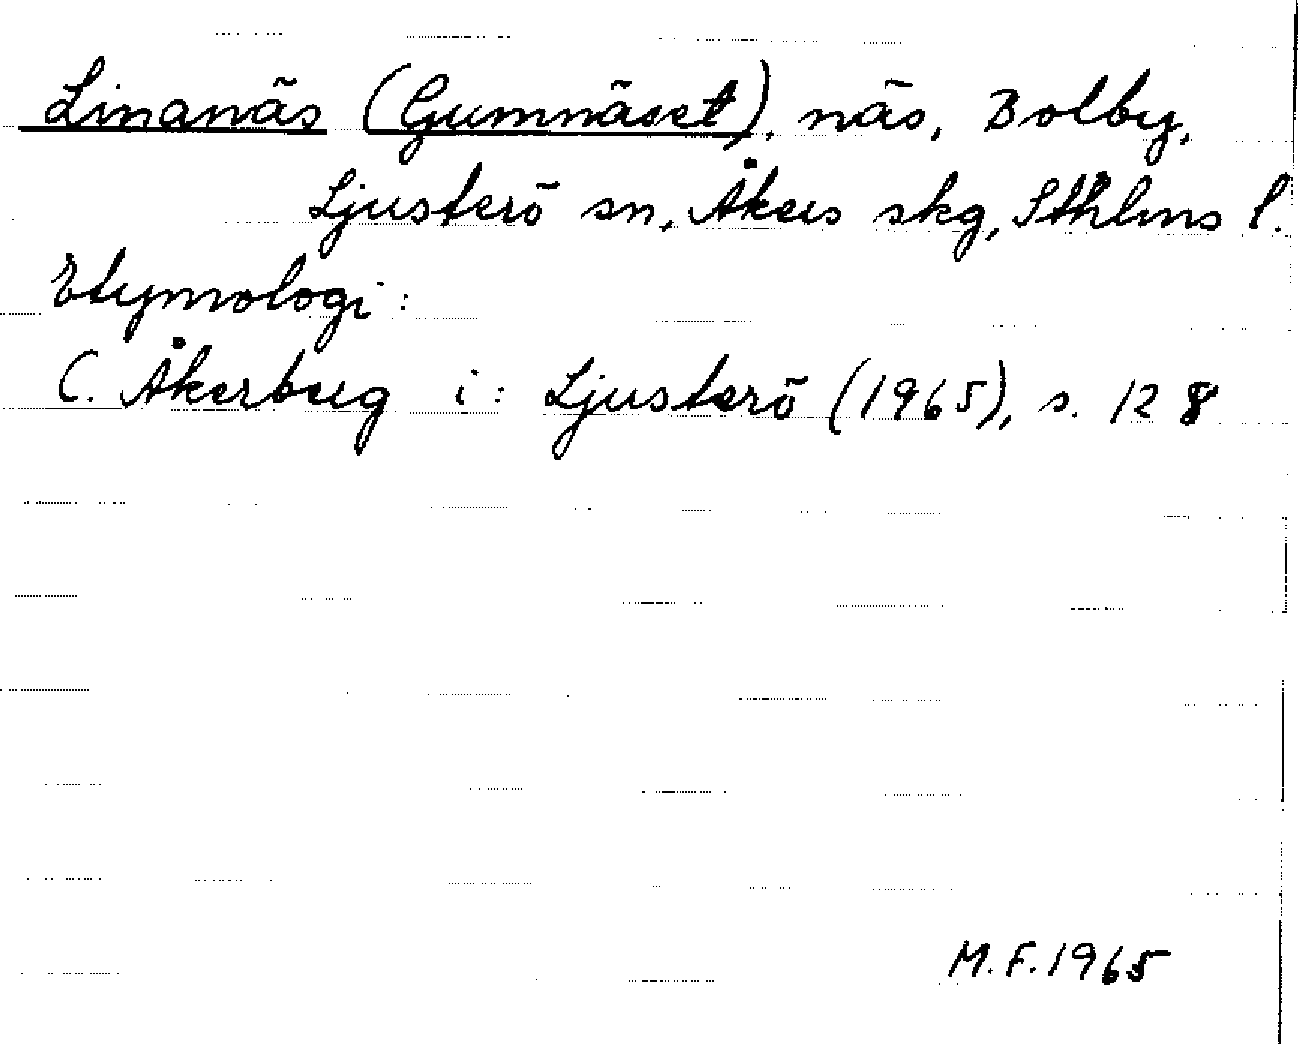 Linanäs (Gumnäset), näs, Bolby,
Ljusterö sn, Åkers skg, Sthlms l.
Etymologi:
C. Åkerberg i: Ljusterö (1965), s. 128
M.F. 1965